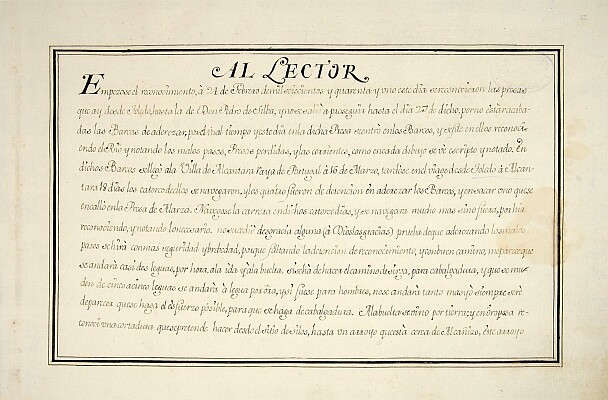 AL LECTOR
Empezose el reconocimiento, à 24 de Febrero de mil seiscientos y quarenta y uno este dia se reconocieron las presas
que ay desde Toledo, hasta la de Don Pedro de Silba, y no se salio a proseguir hasta el dia 27 de dicho, por no estar acaba-
das las Barcas de aderezar, por el mal tiempo y este dia en la dicha Presa se entrò en los Barcos, y se fue en ellos reconoci-
endo el Rio y notando los malos pasos, Presas perdidas, y las corrientes, como en cada dibujo se vè escripto y notado. En
dichos Barcos se llegò ala Villa de Alcantara Raya de Portugal à 16 de Marzo, tardose en el viage desde Toledo à Alcan-
tara 18 dias los catorce de ellos se navegaron, y los quatro fueron de detencion en aderezar los Barcos, y en sacar uno que se
encallò en la Presa de Alarza. Navegose la carrera en dichos catorce dias, y se navegara mucho mas sino fuera, por hir
reconociendo, y notando lo necesario. no sucediò desgracia alguna (à Dios las gracias) prueba de que aderezando los malos
pasos se hirà con mas seguridad y brebedad, porque faltando la detencion de reconocimiento, y con buen camino, me parece que
se andarà casi dos leguas, por hora, ala ida y ala buelta. si se hà de hacer el camino de sirga, para cabalgadura, y que se mu-
den de cinco a cinco leguas se andarà à legua por ora, y si fuese para hombres, no se andarà tanto mas yo siempre serè
de parecer que se haga el esfuerzo posible, para que se haga de cabalgadura. A la buelta se vino por tierra; y en Oropesa re-
conoci una cortadura que se pretende hacer desde el Sitio de Silos, hasta un arroyo que està cerca de Alcañizo, este arroyo